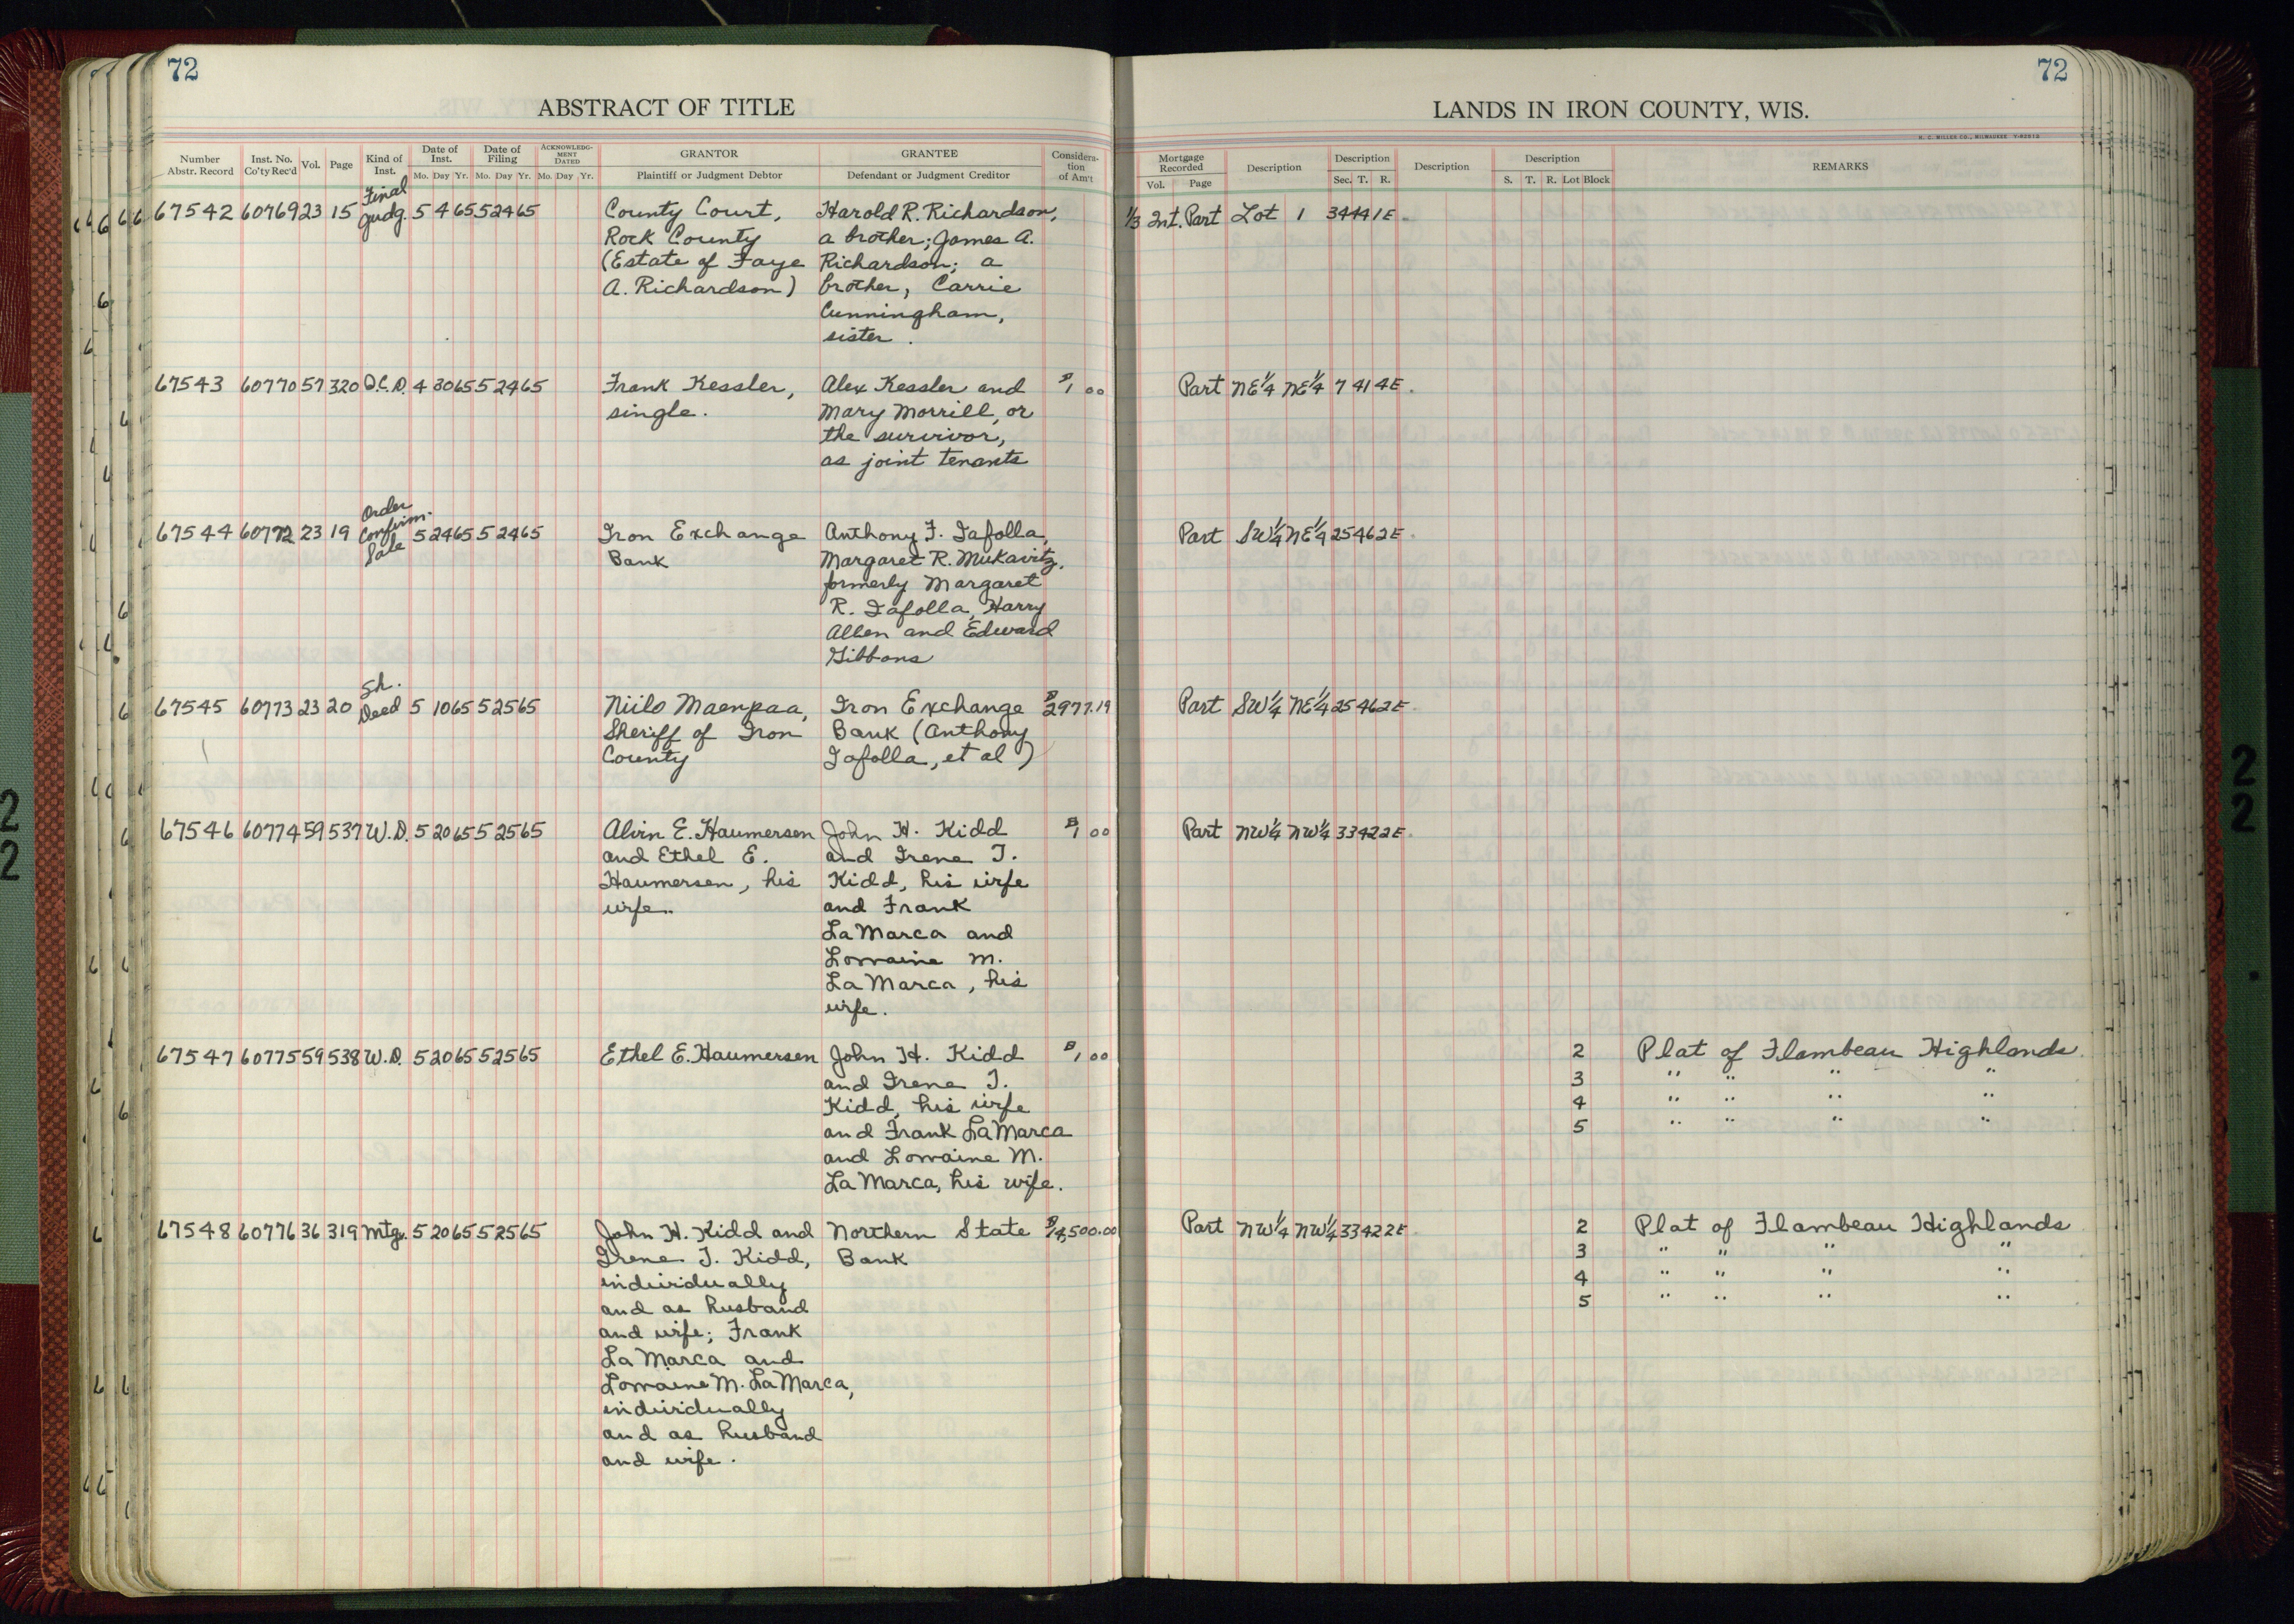 72
72
ABSTRACT OF TITLE
LANDS IN IRON COUNTY, WIS.
H. C. MILLER CO., MILWAUKEE
Number Abstr. Record | Inst. No. Co'ty Rec'd | Vol. | Page | Kind of Inst. | Date of Inst. Mo. Day Yr. | Date of Filing Mo. Day Yr. | ACKNOWLEDGMENT DATED Mo. Day Yr. | GRANTOR Plaintiff or Judgment Debtor | GRANTEE Defendant or Judgment Creditor | Consideration of Am't | Mortgage Recorded Vol. Page | Description | Description Sec. T. R. | Description | Description S. T. R. Lot Block | REMARKS
Final
67542 60769 23 15 Judg. 5 4 65 5 24 65 County Court, Harold R. Richardson, 1/3 Int. Part Lot 1 34 44 1E
Rock County a brother; James A.
(Estate of Faye Richardson; a
A. Richardson) brother, Carrie
Cunningham,
sister.
67543 60770 57 320 Q.C.D. 4 30 65 5 24 65 Frank Kessler, Alex Kessler and $1 00 Part NE¼ NE¼ 7 41 4E
single. Mary Morrill, or
the survivor,
as joint tenants
Order
67544 60772 23 19 Confirm. 5 24 65 5 24 65 Iron Exchange Anthony F. Tafolla, Part SW¼ NE¼ 25 46 2E
Sale Bank Margaret R. Mukavitz,
formerly Margaret
R. Tafolla, Harry
Allen and Edward
Gibbons
Sh.
67545 60773 23 20 Deed 5 10 65 5 25 65 Niilo Maenpaa, Iron Exchange $2977.19 Part SW¼ NE¼ 25 46 2E
Sheriff of Iron Bank (Anthony
County Tafolla, et al)
67546 60774 59 537 W.D. 5 20 65 5 25 65 Alvin E. Haumersen John H. Kidd $1 00 Part NW¼ NW¼ 33 42 2E
and Ethel E. and Irene T.
Haumersen, his Kidd, his wife
wife. and Frank
LaMarca and
Lorraine M.
LaMarca, his
wife.
67547 60775 59 538 W.D. 5 20 65 5 25 65 Ethel E. Haumersen John H. Kidd $1 00 2 Plat of Flambeau Highlands
and Irene T. 3 " " " "
Kidd, his wife 4 " " " "
and Frank LaMarca 5 " " " "
and Lorraine M.
LaMarca, his wife.
67548 60776 36 319 Mtg. 5 20 65 5 25 65 John H. Kidd and Northern State Part NW¼ NW¼ 33 42 2E 2 Plat of Flambeau Highlands
Irene T. Kidd, Bank 3 " " " "
individually 4 " " " "
and as husband 5 " " " "
and wife; Frank
La Marca and
Lorraine M. LaMarca,
individually
and as husband
and wife.
2
2
2
2